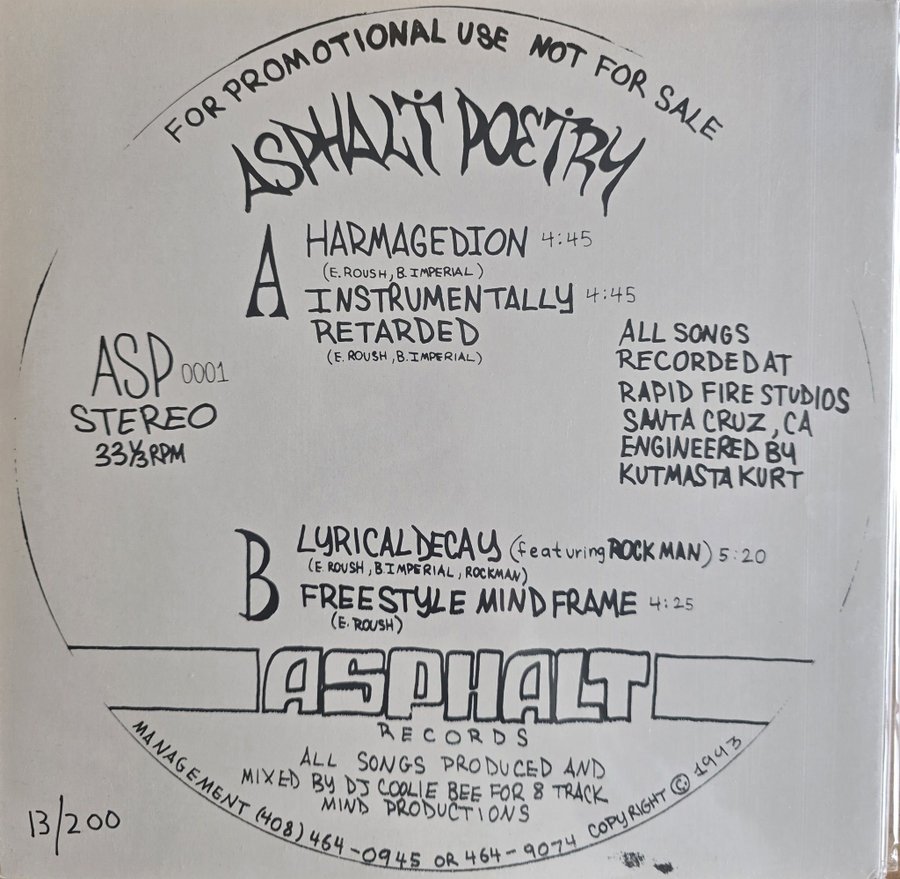 FOR PROMOTIONAL USE NOT FOR SALE
ASPHALT POETRY
A
HARMAGEDION 4:45
(E. ROUSH, B. IMPERIAL)
INSTRUMENTALLY 4:45
RETARDED
(E. ROUSH, B. IMPERIAL)
ASP 0001
STEREO
33 1/3 RPM
ALL SONGS
RECORDED AT
RAPID FIRE STUDIOS
SANTA CRUZ, CA
ENGINEERED BY
KUTMASTA KURT
B
LYRICAL DECAY (featuring ROCKMAN) 5:20
(E. ROUSH, B IMPERIAL, ROCKMAN)
FREESTYLE MIND FRAME 4:25
(E. ROUSH)
ASPHALT
RECORDS
ALL SONGS PRODUCED AND
MIXED BY DJ COOLIE BEE FOR 8 TRACK
MIND PRODUCTIONS
MANAGEMENT (408) 464-0945 OR 464-9074 COPYRIGHT © 1993
13/200